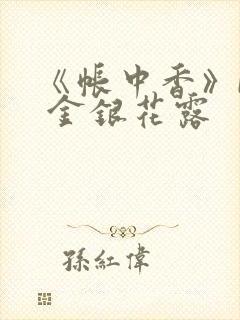 《帳中香》
金銀花露
孫紅偉